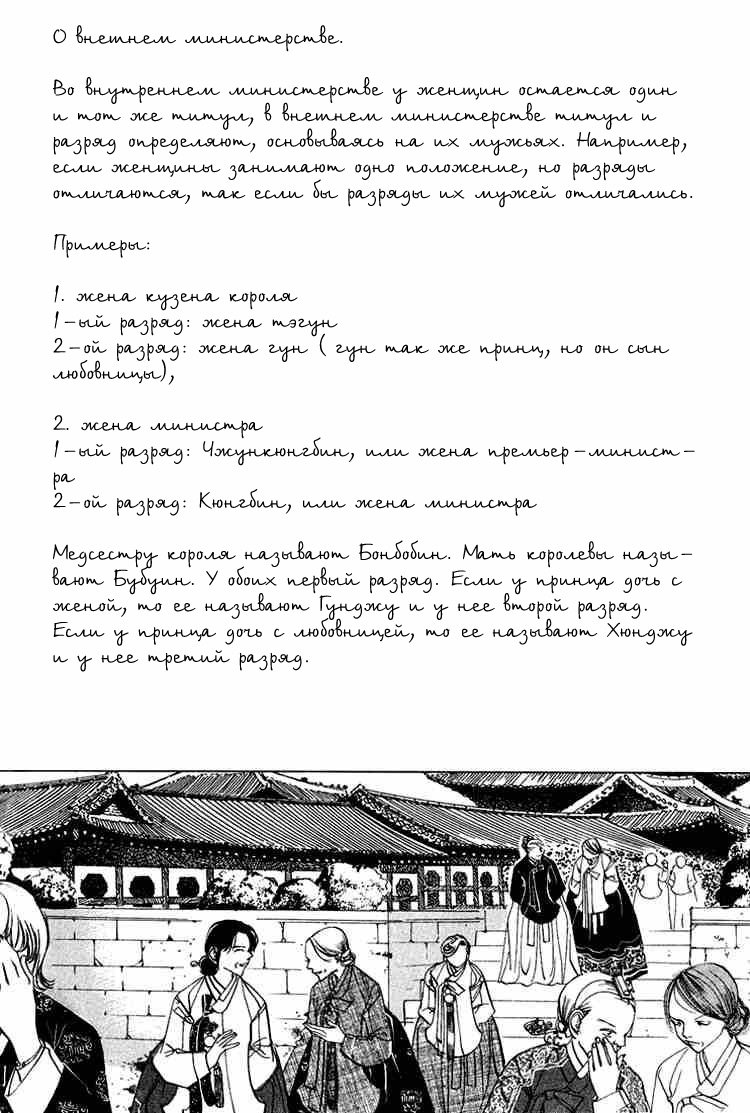 О внешнем министерстве.
Во внутреннем министерстве у женщин остается один
и тот же титул, в внешнем министерстве титул и
разряд определяют, основываясь на их мужьях. Например,
если женщины занимают одно положение, но разряды
отличаются, так если бы разряды их мужей отличались.
Примеры:
1. жена кузена короля
1-ый разряд: жена тэгун
2-ой разряд: жена гун ( гун так же принц, но он сын
любовницы),
2. жена министра
1-ый разряд: Чжункюнгбин, или жена премьер-минист-
ра
2-ой разряд: Кюнгбин, или жена министра
Медсестру короля называют Бонбобин. Мать королевы назы-
вают Бубуин. У обоих первый разряд. Если у принца дочь с
женой, то ее называют Гунджу и у нее второй разряд.
Если у принца дочь с любовницей, то ее называют Хюнджу
и у нее третий разряд.